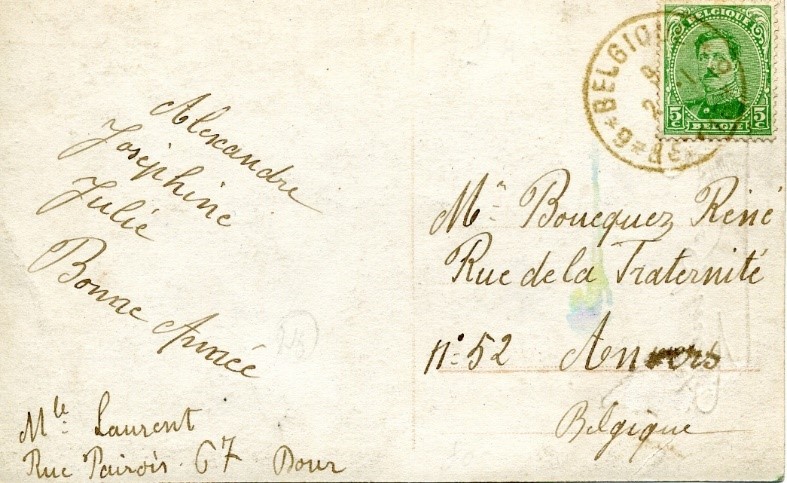 Alexandre
Joséphine
Julie
Bonne Année
Mle Laurent
Rue Pairois 67 Dour
BELGIQUE
5c 5c
BELGIË
Mr Boucquez René
Rue de la Fraternité
n° 52 Anvers
Belgique